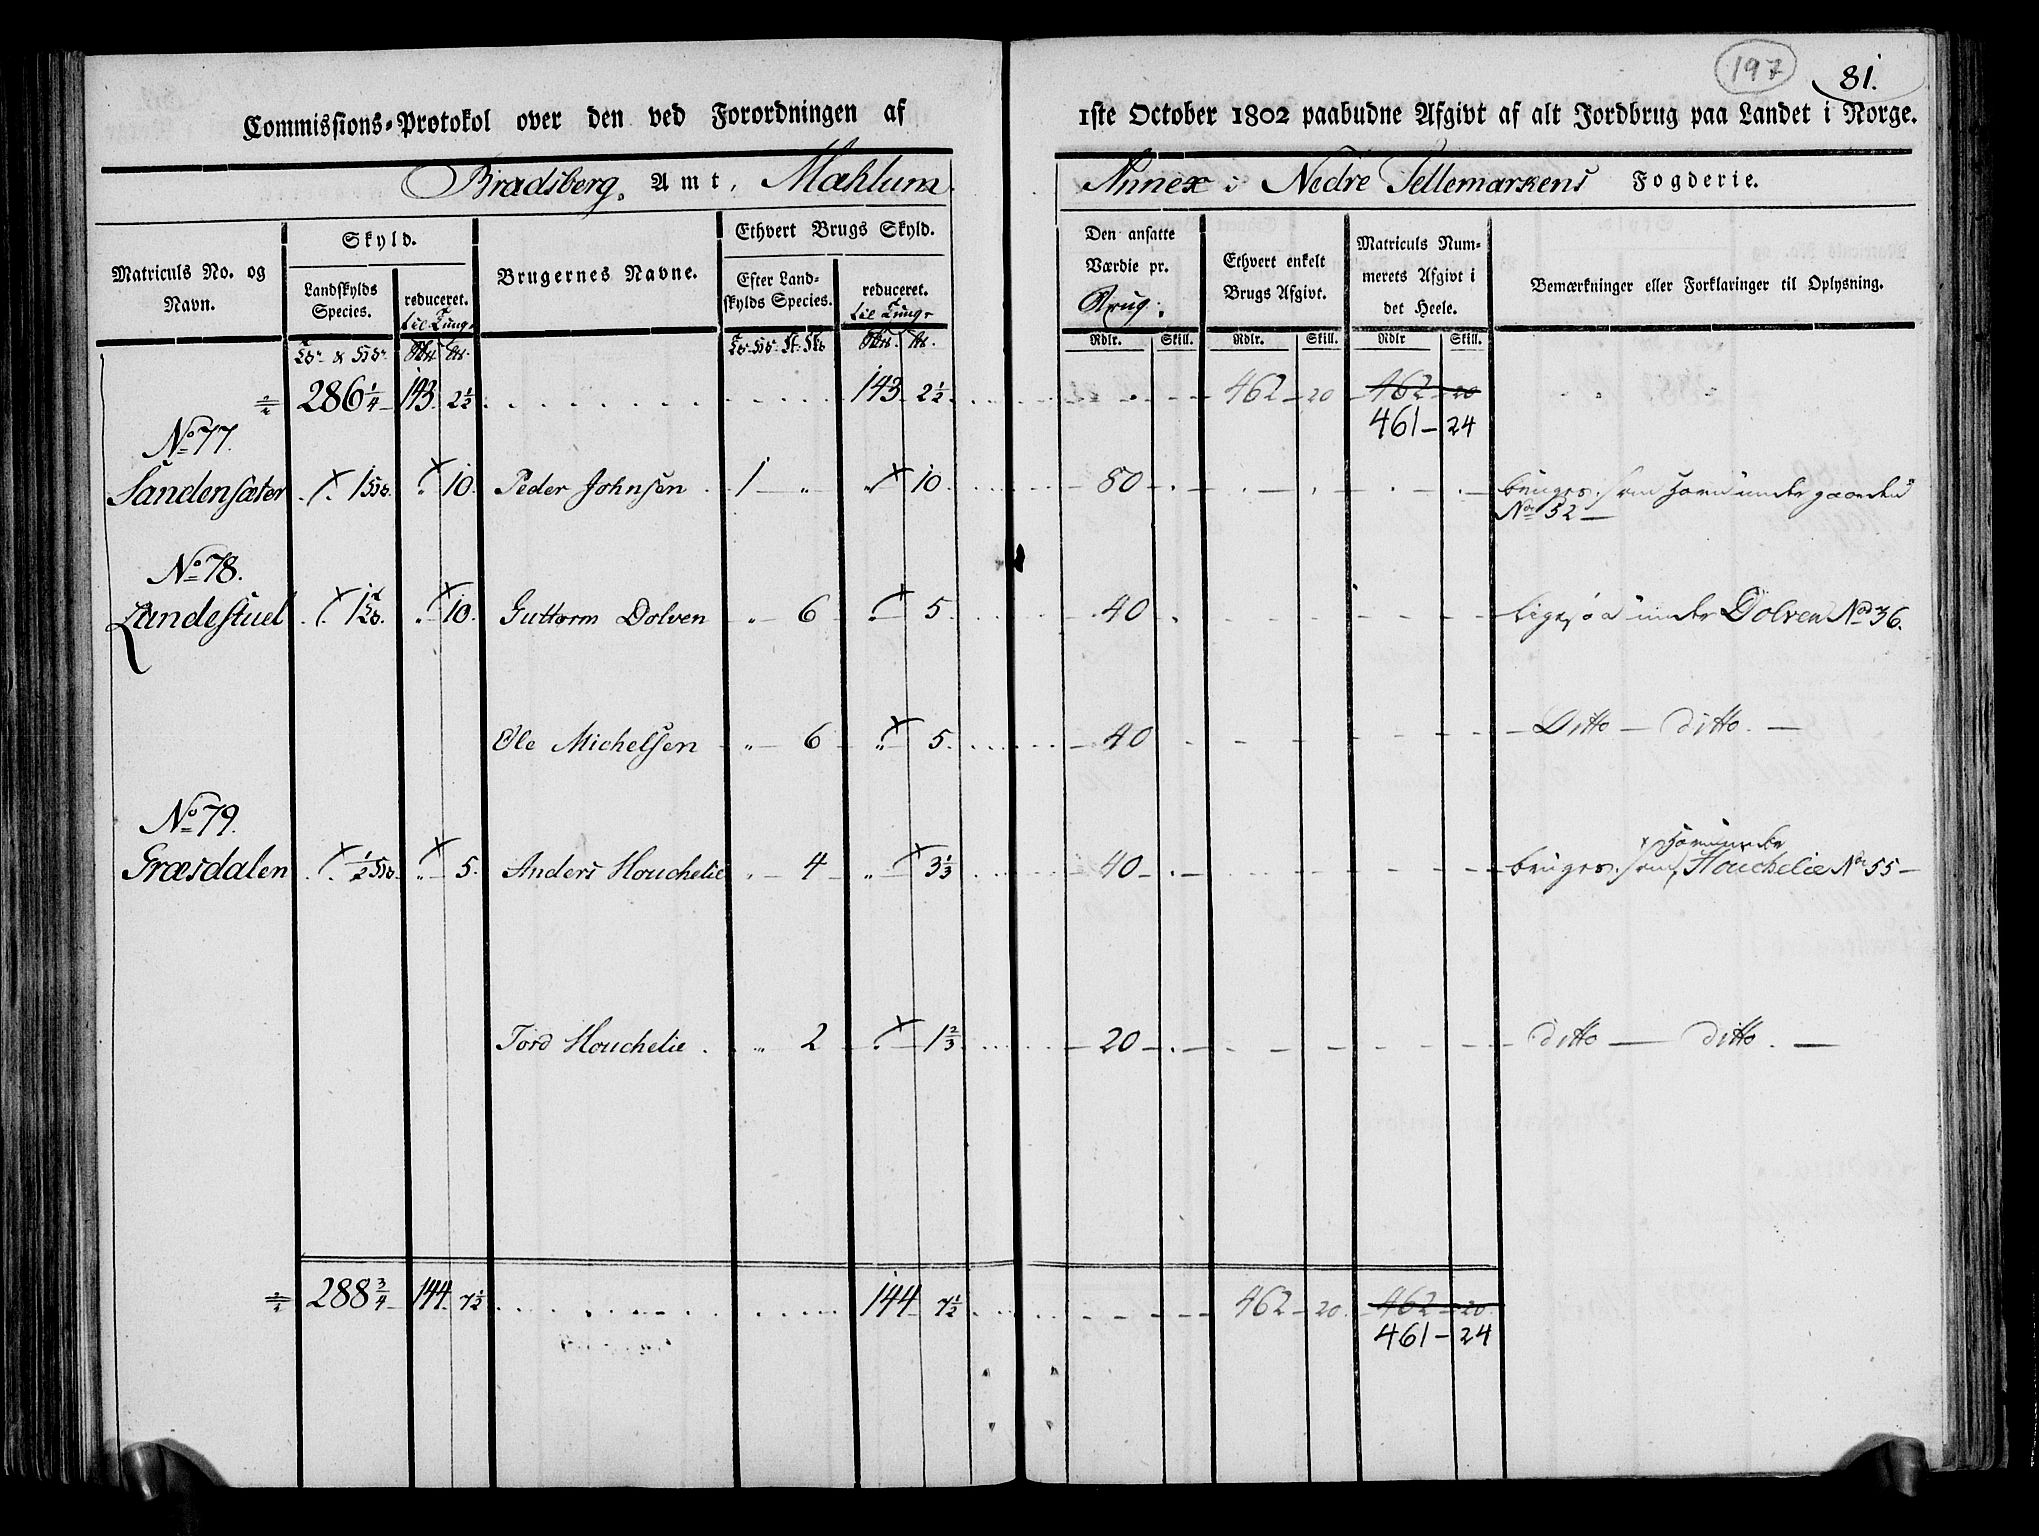 197
81.
Commissions-Protokol over den ved Forordningen af 1ste October 1802 paabudne Afgivt af alt Jordbrug paa Landet i Norge.
Bradsberg. Amt, Mæhlum Annex i Nedre Tellemarkens Fogderie.
Matriculs No. og Navn.
Skyld.
Landskylds Species.
reduceret. til Tung
Brugernes Navne.
Ethvert Brugs Skyld.
Efter Landskylds Species.
reduceret. til Tung
Den ansatte Værdie pr. Brug.
Ethvert enkelt Brugs Afgivt.
Matriculs Nummerets Afgivt i det Heele.
Bemærkninger eller Forklaringer til Oplysning.
Rdlr. Skill. Rdlr. Skill. Rdlr Skill.
286 1/4 143 2 1/2 143 2 1/2 462 20 462 20
461 - 24
No 77.
Sandensæter 1 10 Peder Johnsen 1 10 80 bruges som under gaarden
No 52
No 78.
Landestuel 1 10 Guttorm Dolven 6 5 40 ligesaa under Dolven No 36.
Ole Michelsen 6 5 40 Ditto - ditto -
No 79.
Græsdalen 1/2 5 Anders Houchelie 4 3 1/3 40 bruges som under Houchelie No 55
Tord Houchelie 2 1 2/3 20 ditto - ditto -
288 3/4 144 7 1/2 144 7 1/2 462 - 20 462 - 20
461 - 24